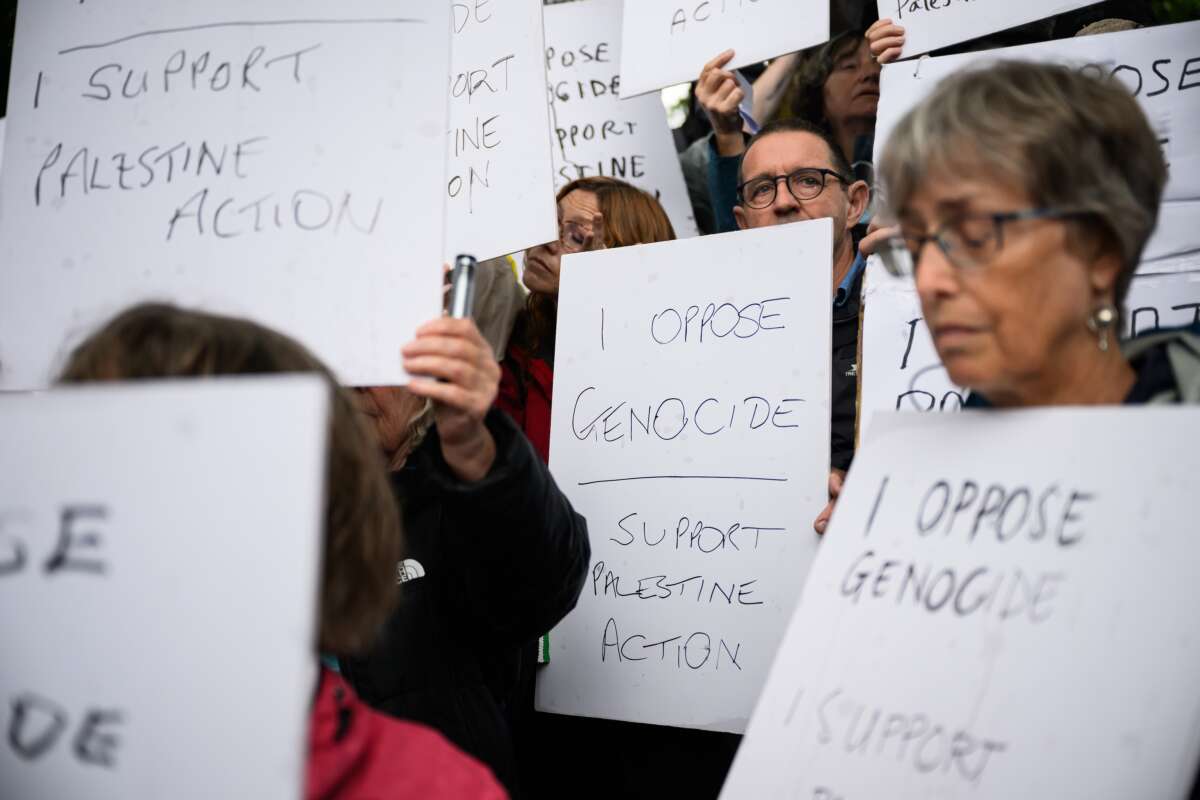 I SUPPORT
PALESTINE
ACTION
DE
ORT
INE
ON
POSE
CIDE
PORT
STINE
ACTION
POSE
I OPPOSE
GENOCIDE
SUPPORT
PALESTINE
ACTION
I
I OPPOSE
GENOCIDE
I SUPPORT
SE
DE